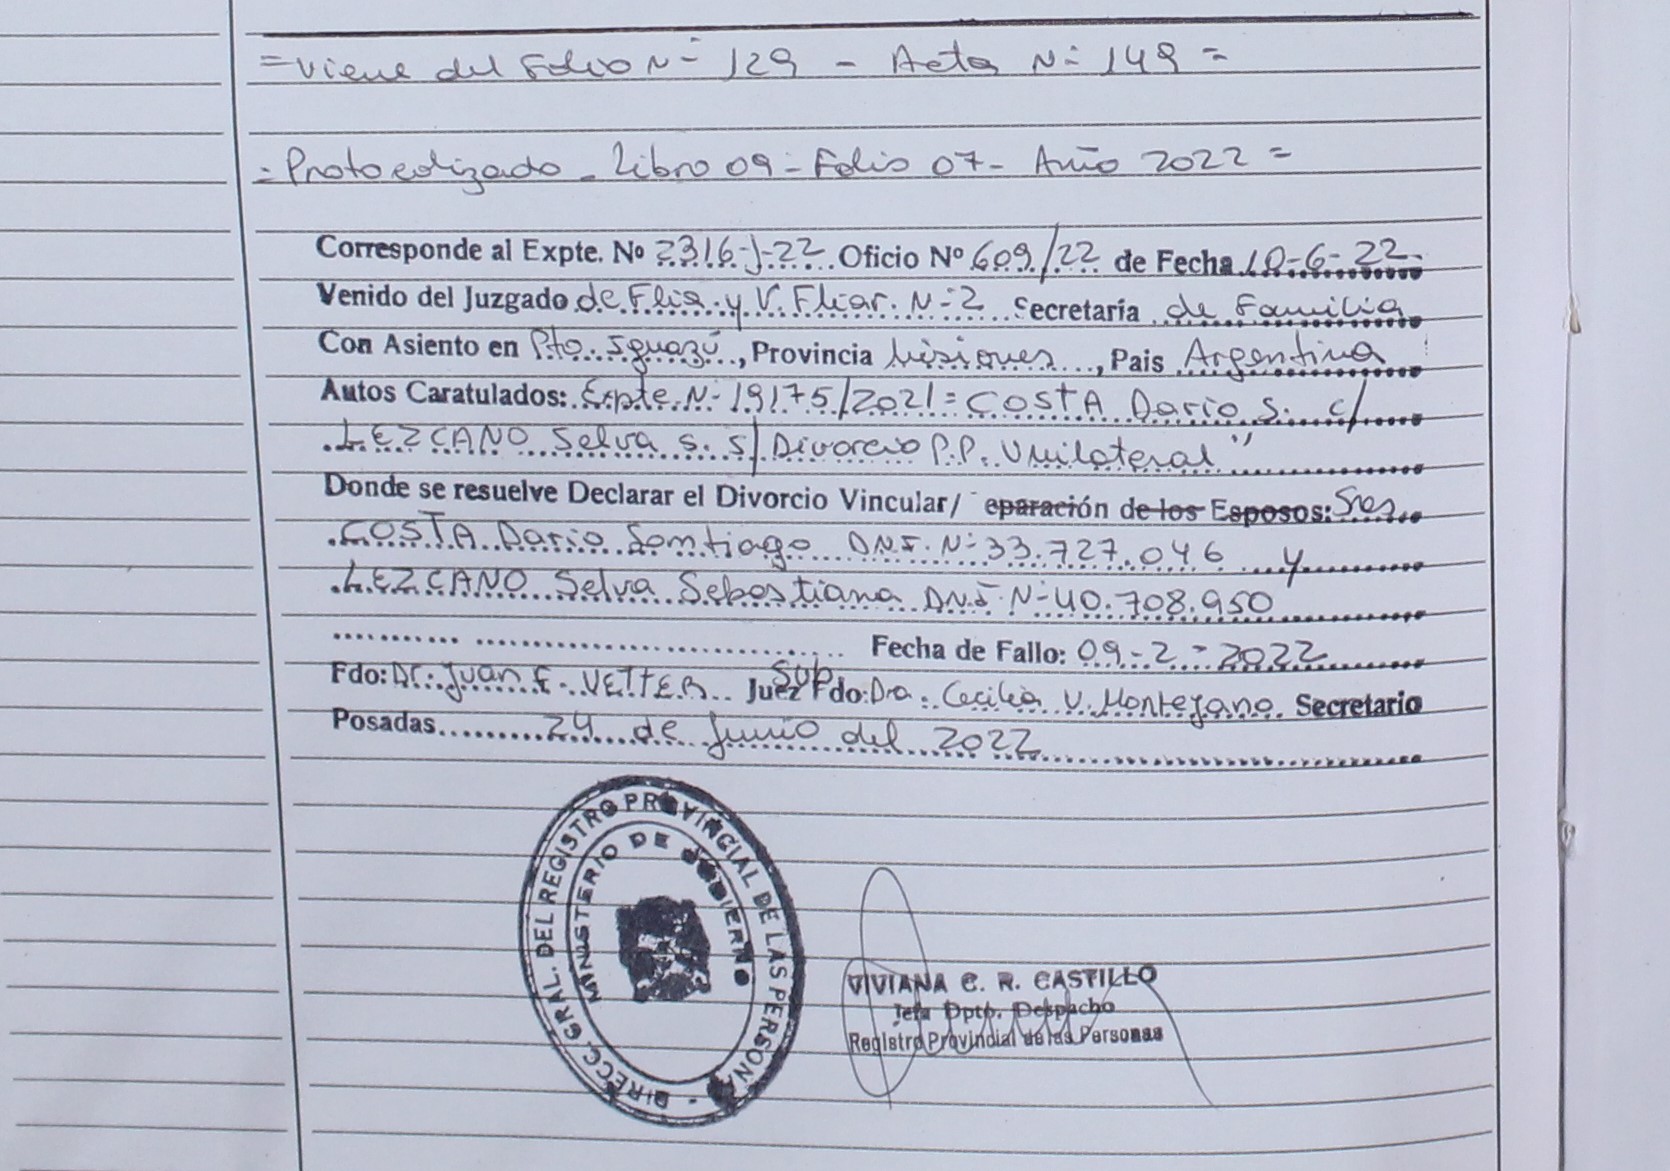 = Viene del Folio N= 129 - Acta N= 149 =
= Protocolizado - Libro 09 - Folio 07 - Año 2022 =
Corresponde al Expte. Nº 2316-J-22 Oficio Nº 609/22 de Fecha 10-6-22
Venido del Juzgado de Flia. y V. Fliar. N=2 Secretaría de Familia
Con Asiento en Pto. Iguazú, Provincia Misiones, Pais Argentina
Autos Caratulados: Expte. N= 19175/2021 = COSTA Dario S. c/
LEZCANO Selva S. S/ Divorcio P.P. Unilateral"
Donde se resuelve Declarar el Divorcio Vincular/ eparación de los Esposos: Sres
COSTA Dario Santiago DNI. N= 33.727.046 y
LEZCANO Selva Sebastiana DNI. N= 40.708.950
Fecha de Fallo: 09-2-2022
Fdo: Dr. Juan E. VETTER Juez Sub Fdo: Dra. Cecilia V. Montejano Secretario
Posadas 24 de Junio del 2022
DIRECC. GRAL. DEL REGISTRO PROVINCIAL DE LAS PERSONAS -
MINISTERIO DE GOBIERNO
VIVIANA C. R. CASTILLO
Jefa Dpto. Despacho
Registro Provincial de las Personas